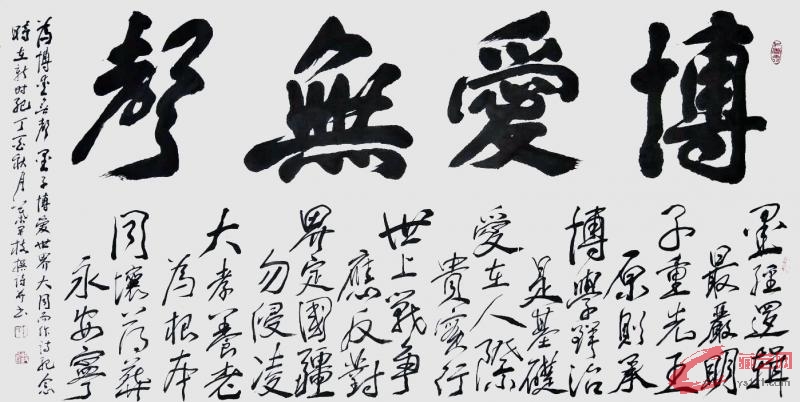 博愛無聲
墨經邏輯
最嚴明
子重先王
原則承
博學治
是基礎
愛在人際
貴實行
世上戰争
應反對
界定國疆
勿侵凌
大孝養老
為根本
同壤薄葬
永安寧
為博愛無聲 墨子博愛世界大同而作詩紀念
時在新时紀丁酉秋月撰诗并書